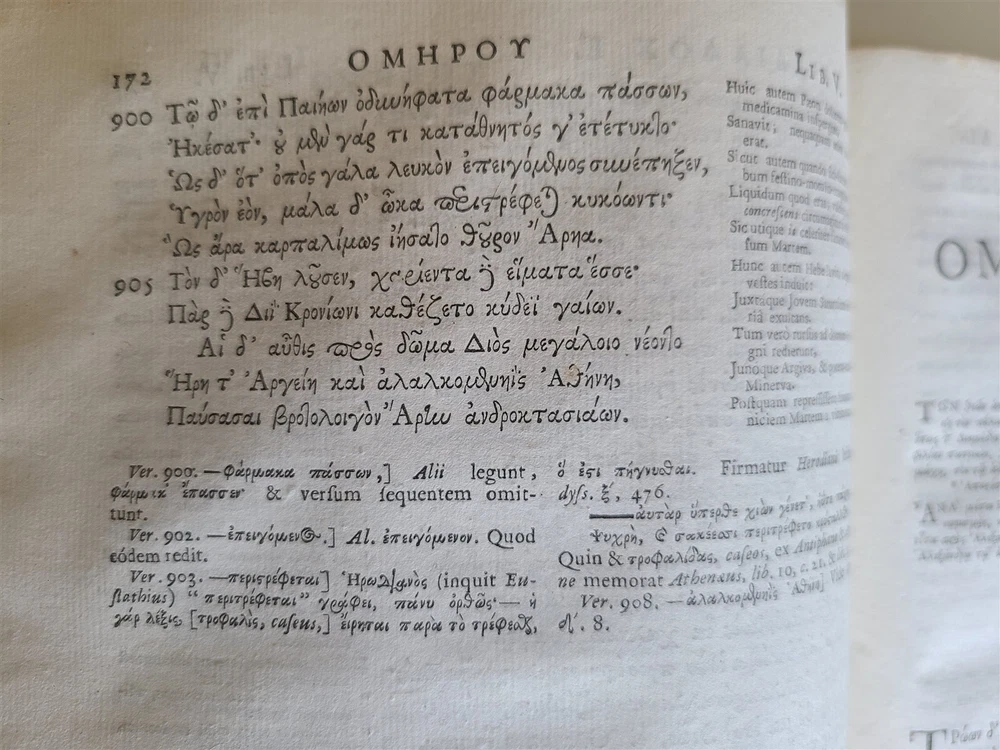 172
ΟΜΗΡΟΥ
LIB. V.
900 Τῷ δ' ἐπὶ Παιήων ὀδυνήφατα φάρμακα πάσσων,
Ἠκέσατ'· οὐ μὲν γάρ τι κατάθνητός γ' ἐτέτυκτο·
Ὡς δ' ὅτ' ὀπὸς γάλα λευκὸν ἐπειγόμενος συνέπηξεν,
Ὑγρὸν ἐὸν, μάλα δ' ὦκα περιστρέφεται κυκόωντι·
Ὣς ἄρα καρπαλίμως ἰήσατο θοῦρον Ἄρηα.
905 Τὸν δ' Ἥβη λοῦσεν, χαρίεντα δὲ εἵματα ἕσσε·
Πὰρ δὲ Διῒ Κρονίωνι καθέζετο κύδεϊ γαίων.
Αἱ δ' αὖθις πρὸς δῶμα Διὸς μεγάλοιο νέοντο
Ἥρη τ' Ἀργείη καὶ ἀλαλκομενηῒς Ἀθήνη,
Παύσασαι βροτολοιγὸν Ἄρην ἀνδροκτασιάων.
Huic autem
medicamina
Sanavit;
erat.
Sicut autem quando
bum festino
Liquidum quod
concrescens
Sic utique is celeriter
sum Martem.
Hunc autem Hebe
vestes induit:
Juxtaque Jovem
riâ exultans.
Tum verò rursus ad
gni redierunt,
Junoque Argiva, &
Minerva.
Postquam
niciem Martem
Ver. 900. —Φάρμακα πάσσων,] Alii legunt,
φάρμακ' ἔπασσεν· & versum sequentem omit-
tunt.
Ver. 902. —ἐπειγόμενος.] Al. ἐπειγόμενον. Quod
eódem redit.
Ver. 903. —περιστρέφεται] Ἡρωδιανὸς (inquit Eu-
stathius) "περιτρέφεται" γράφει, πάνυ ὀρθῶς·— ἡ
γάρ λέξις, [τροφαλὶς, caseus,] εἴρηται παρὰ τὸ τρέφεσθαι,
ὅ ἐστι πήγνυσθαι. Firmatur
dyss. ξ, 476.
—αὐτὰρ ὕπερθε χιὼν γένετ',
Ψυχρὴ, καὶ σακέεσσι περιτρέφετο
Quin & τροφαλίδας, caseos, ex
ne memorat Athenæus, lib. 10, c.
Ver. 908. —ἀλαλκομενηῒς Ἀθήνη]
δ'. 8.
ΟΜ